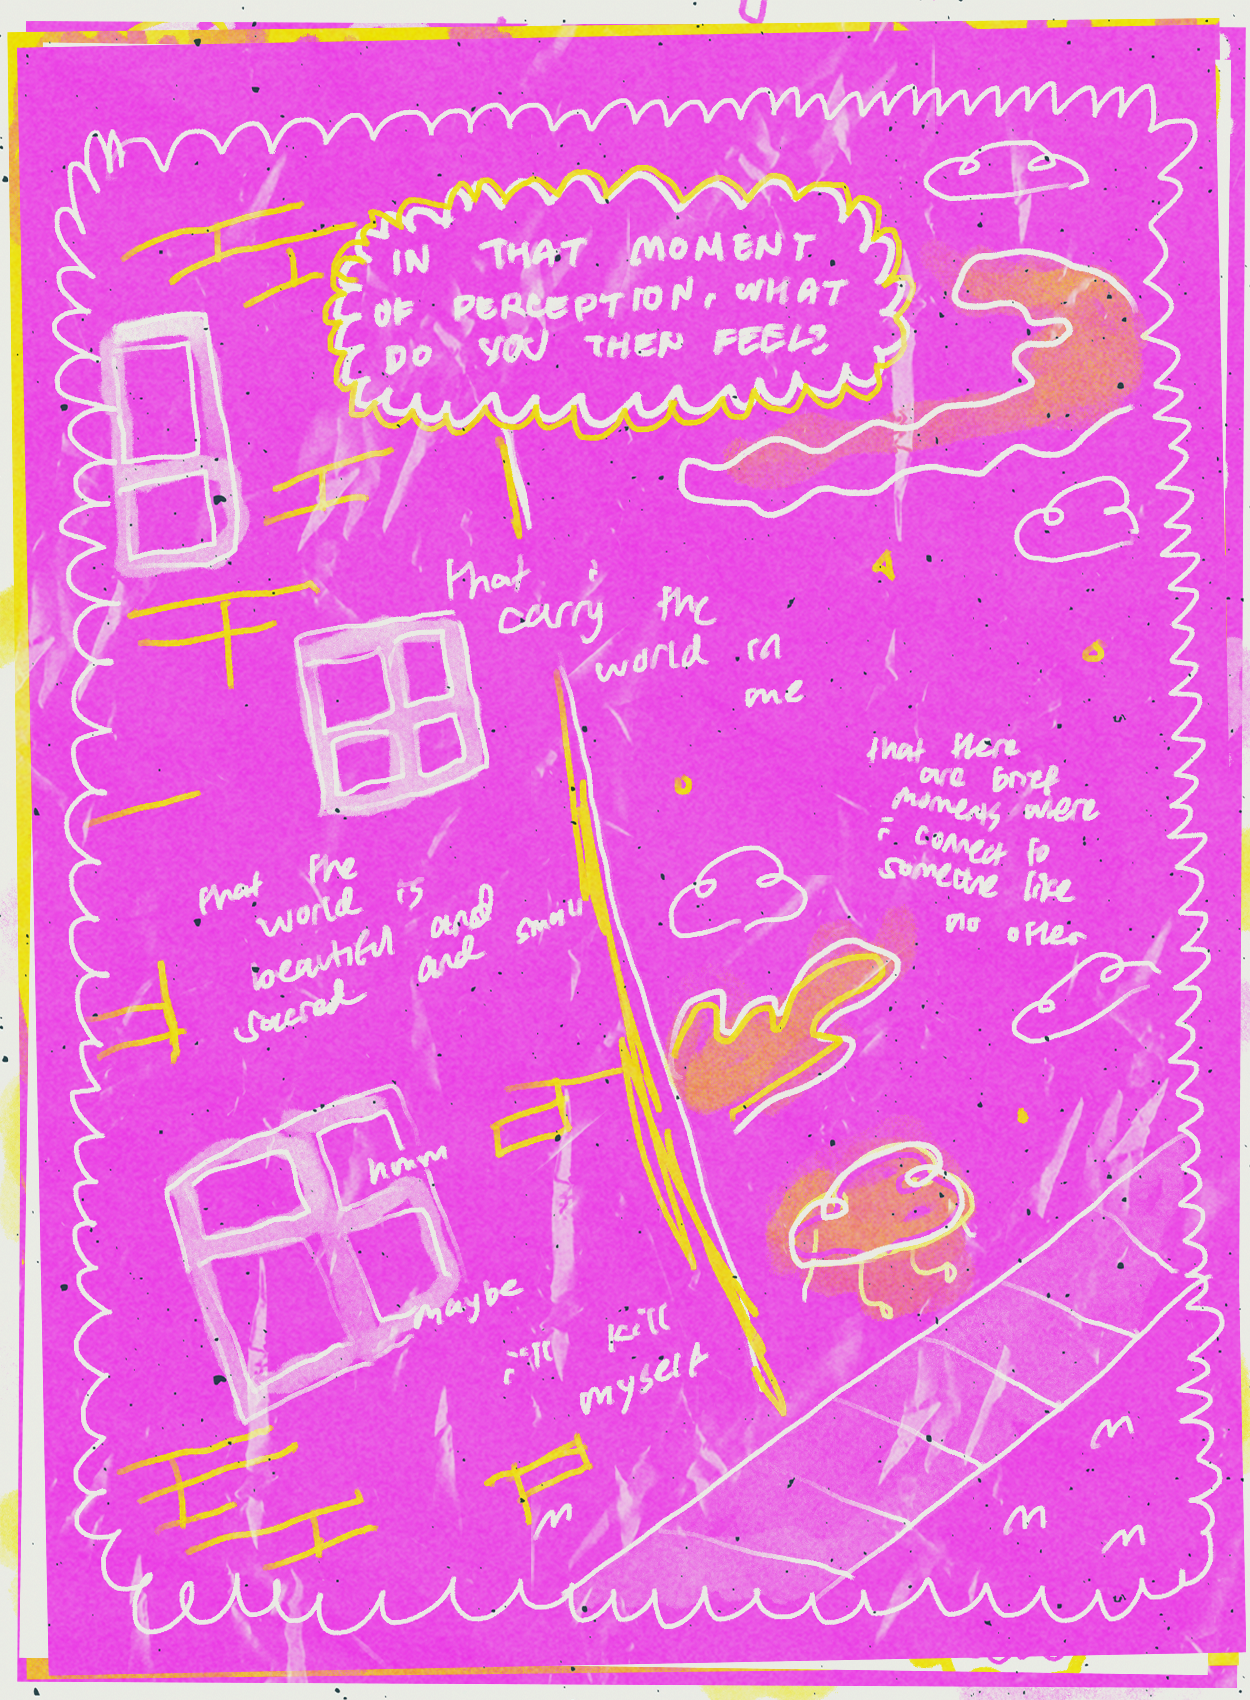 IN THAT MOMENT
OF PERCEPTION, WHAT
DO YOU THEN FEEL?
that i
carry the
world in
me
that there
are brief
moments where
i connect to
someone like
no other
that the
world is
beautiful and
sacred and small
hmm
maybe
i'll kill
myself